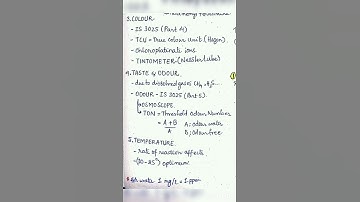 3. COLOUR
- IS 3025 (Part 4)
- TCU = True colour unit (Hazen)
- chloroplatinate ions
- TINTOMETER (Nessler tube)
4. TASTE & ODOUR
- due to dissolved gases CH4, H2S...
- ODOUR - IS 3025 (Part 5)
OSMOSCOPE
TON = Threshold Odour Number
= A+B / A
A; odour water
B; odour free
5. TEMPERATURE
- rate of reaction affects
- (10-25°) optimum
for water 1 mg/L = 1 ppm